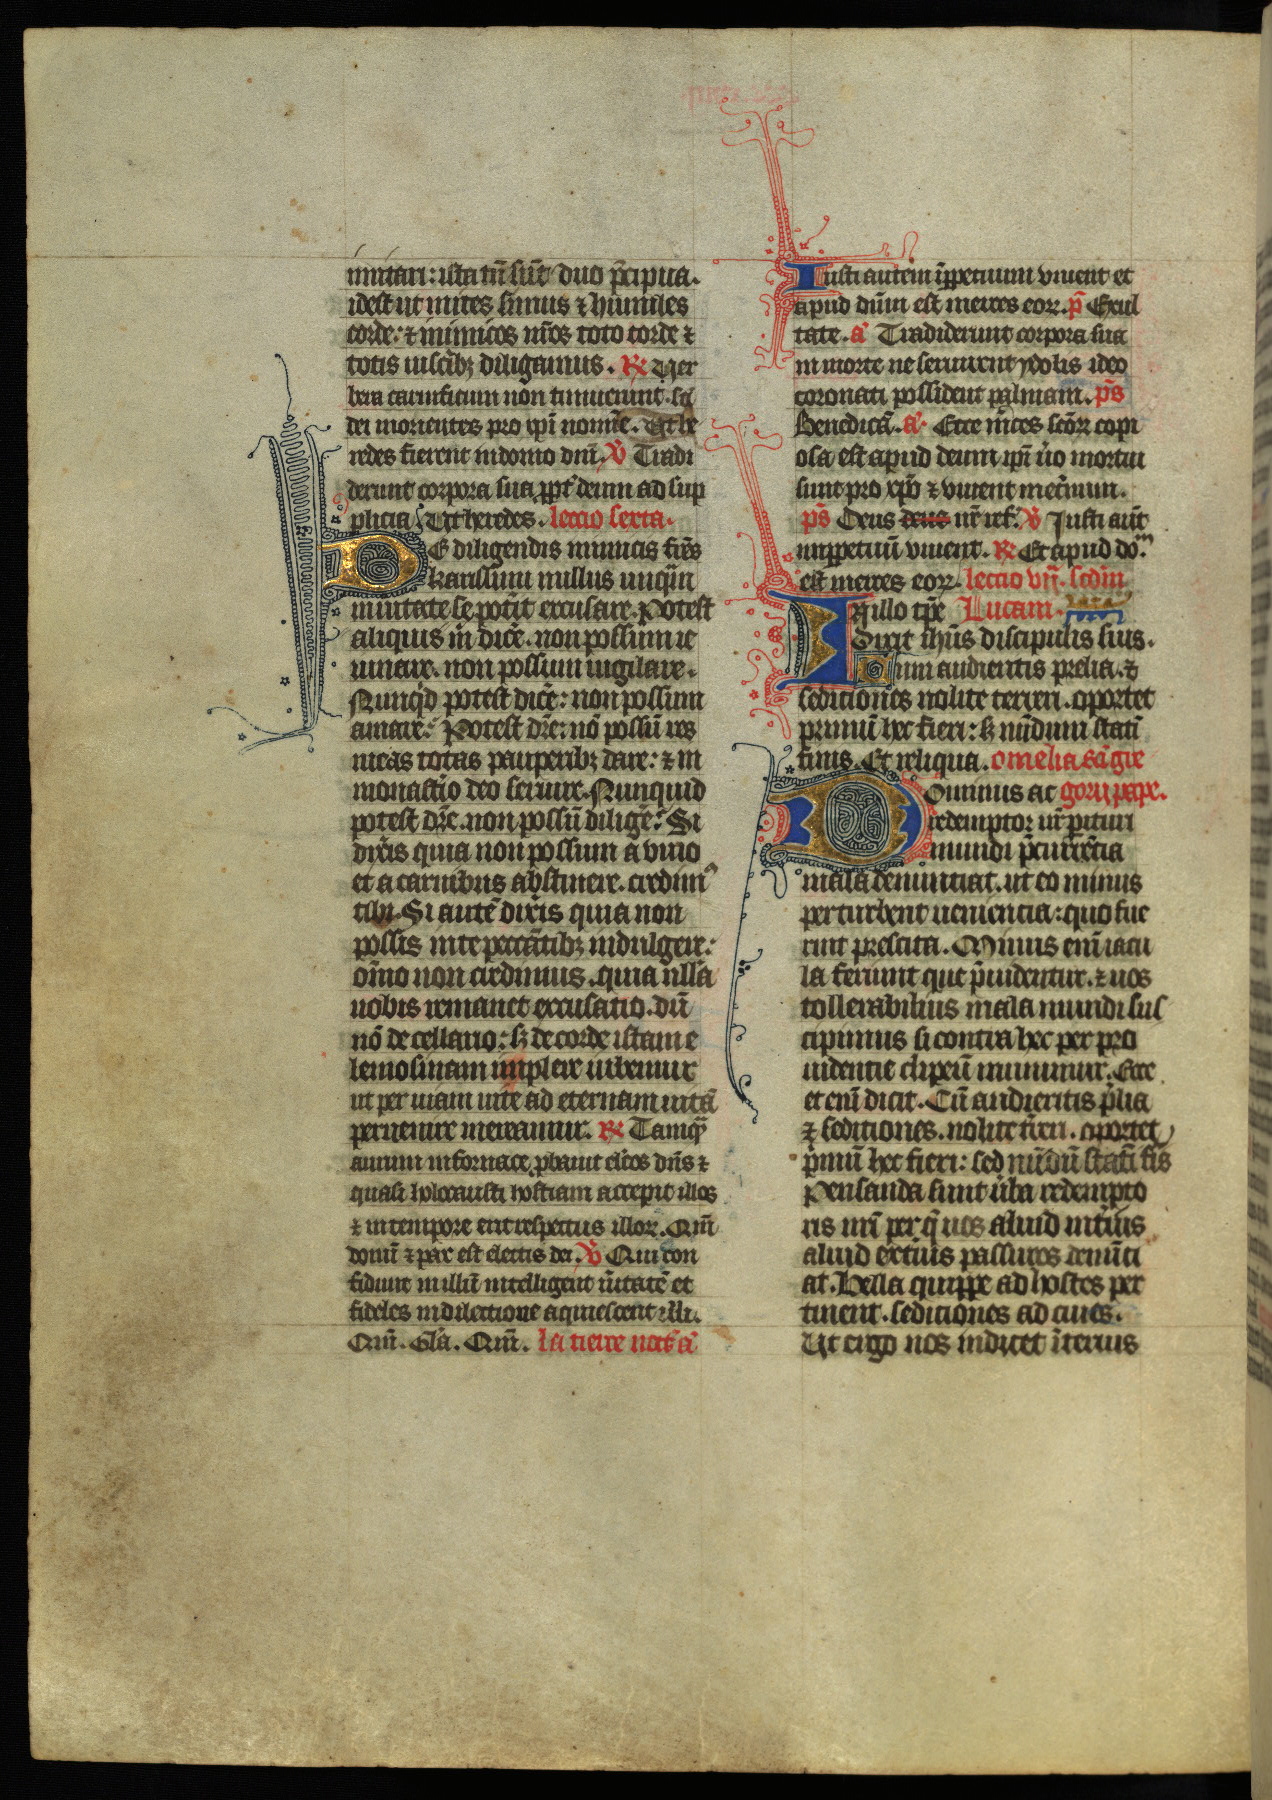 imitari: ista tn̄ sūt duo p̄cipua.
idest ut mites simus ⁊ humiles
corde: ⁊ inimicos nr̄os toto corde ⁊
totis uiscibꝫ diligamus. R̷ Uer
bera carnificum non timuerunt sc̄i
dei morientes pro xp̄i nomīe. Ut he
redes fierent in domo dn̄i. V̷ Tradi
derunt corpora sua ꝓpt̾ deum ad sup
plicia Ut heredes. leccio sexta.
DE diligendis inimicis frēs
karissimi nullus unqm̄
mutate se pot̾it excusare. Potest
aliquis m̄ dic̄e. non possum ie
iunare. non possum uigilare.
Nunqd potest dic̄e: non possum
amare. Potest dr̄e: nō possū res
meas totas pauperibꝫ dare: ⁊ in
monast̾io deo seruire. Nunquid
potest dr̄e. non possū dilige᷒. Si
dix̾is quia non possum a vino
et a carnibus abstinere. credimꝰ
tibi. Si autē dix̾is quia non
possis in te peccātibꝫ indulgere:
om̄no non credimus. quia nlla
uobis remanet excusatio. dū
nō de cellario: sꝫ de corde istam e
lemosinam implere iubemur
ut per uiam uite ad eternam uitā
peruenire mereamur. R̷ Tamqͣ
aurum in fornace ꝓbauit el̄cos dn̄s ⁊
quasi holocausti hostiam accepit illos
⁊ in tempore erit respectus illoꝝ. Qm̄
donū ⁊ pax est electis dei. V̷ Qui con
fidunt in illū intelligent u̾itatē et
fideles in dilectione aquiescent illi.
Qm̄. Gl̄a. Qm̄. la tierce noct̾ a᷒
Iusti autem īꝑpetuum viuent et
apud dūm est merces eoꝝ. p̄ Exul
tate. a᷒ Tradiderunt corpora sua
in morte ne seruirent ydolis ideo
coronati possident palmam. p̄s
Benedicā. a᷒. Ecce m̄ces sc̄oꝝ copi
osa est apud deum ip̄i u̾o mortui
sunt pro xp̄o ⁊ viuent met̾mun.
p̄s Deus deus nr̄ ref. V̷ Iusti aūt
inꝑpetuū viuent. R̷ Et apud do.m
est merces eoꝝ. leccio vij. scdm̄
IN illo tp̄e Lucam.
Dixit ih̄us discipulis suis.
Cum audieritis prelia. ⁊
sediciones nolite terreri. oportet
primū hec fieri: sꝫ nōdum stati
finis. Et reliqua. omelia sc̄i gre
Dominus ac gorij pape.
redemptor nr̄ pituri
mundi p̄currēcia
mala denuntiat. ut eo minus
perturbent uenientia: quo fue
rint prescita. Minus enī iacu
la feriunt que p̄uidentur. ⁊ nos
tollerabilius mala mundi sus
cipimus si contra hec per pro
uidentie clipeū munimur. Ecce
et enī dicit. Cū audieritis p̄lia
⁊ seditiones. nolite t̾reri. oportet
p̄mū hec fieri: sed nōdū stati fīs
Pensanda sunt u̾ba redempto
ris nr̄i per q̄ nos aliud int̾ius
aliud ext̾ius passuros denūti
at. Bella quippe ad hostes per
tinent. sediciones ad ciues.
Ut ergo nos indicet īterius